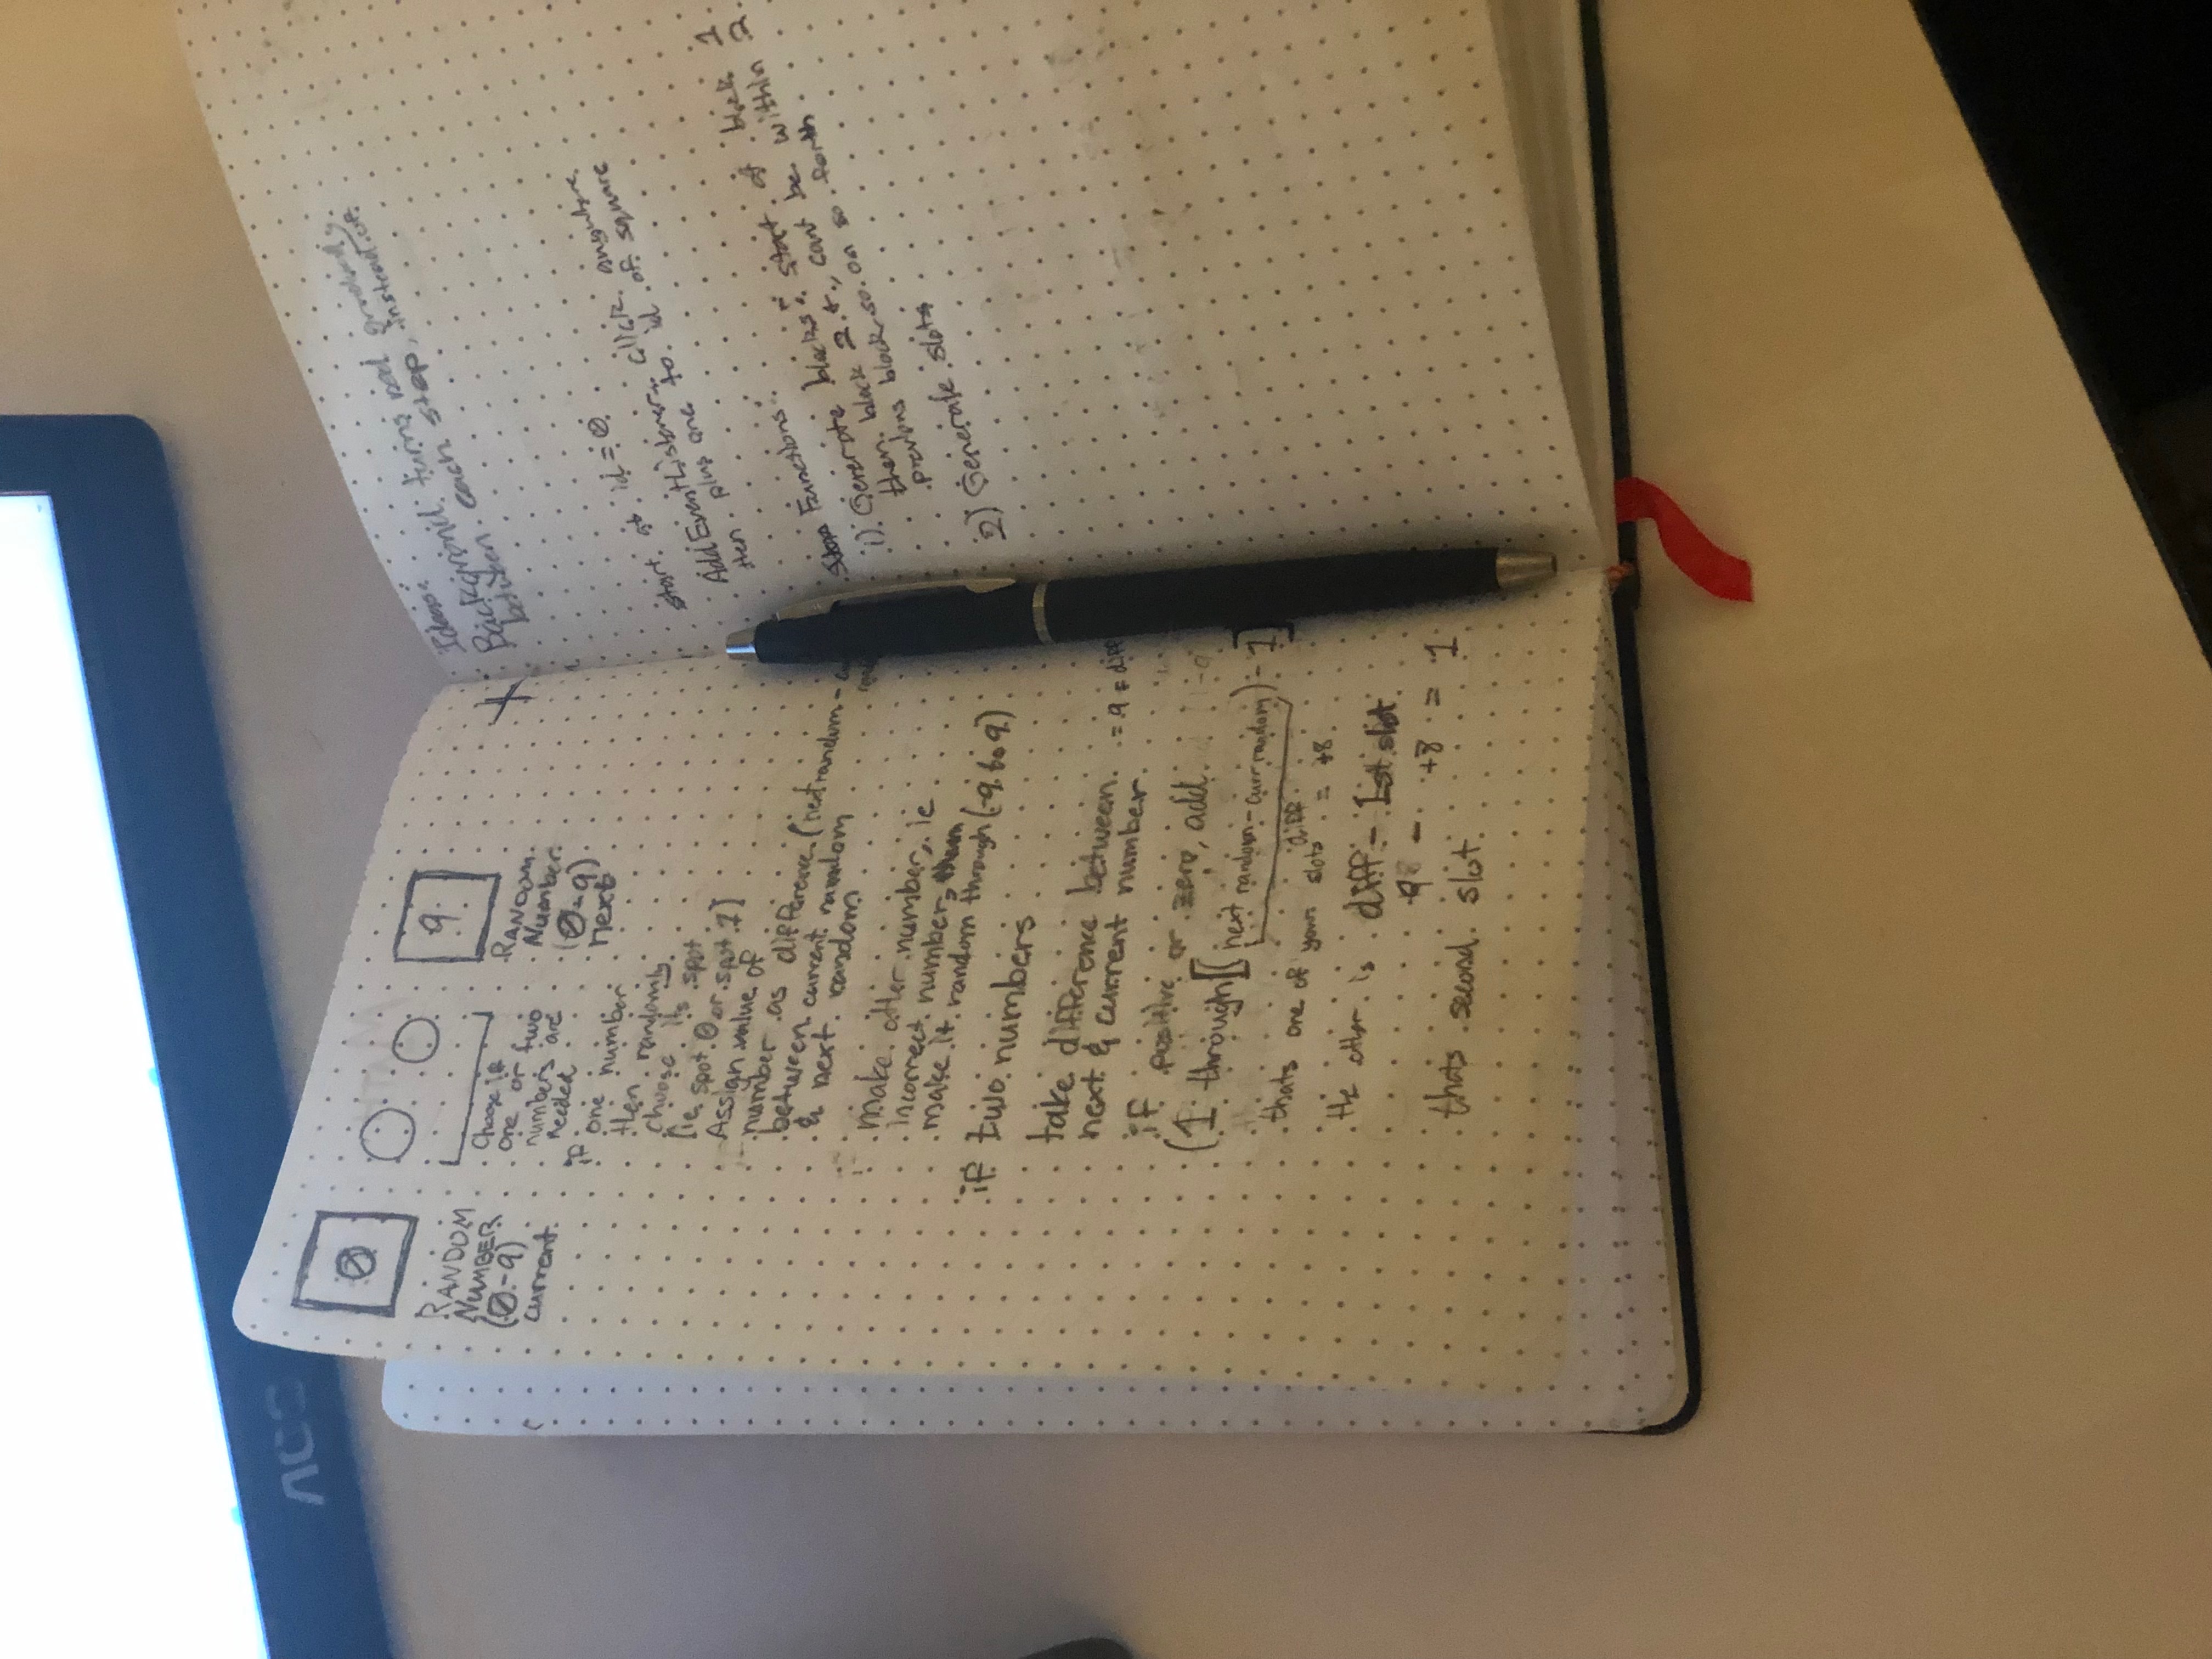 AOC
Ø
9
RANDOM
NUMBER
(Ø-9)
current
Choose if
one or two
numbers are
needed
RANDOM
Number
(Ø-9)
next
if one number
then randomly
choose its spot
[ie spot Ø or spot 1]
Assign value of
number as difference (nextrandom -
between current random
& next random
make other number, ie
incorrect number,
make it random through (-9 to 9)
if two numbers
take difference between
next & current number. = 9 = diff
if positive or zero, add
(1 through [(next random - curr random) - 1]
diff
thats one of your slots = +8
the other is diff - 1st slot
9 - +8 = 1
thats second slot.
X
Ideas:
Background turns red gradually
between each step, instead of
start at id = Ø
AddEventListener, click anywhere
then plus one to id of square
Functions:
1) Generate blocks: start at block 1
then block 2 +, cant be within 2
previous block so on so forth
2) Generate slots